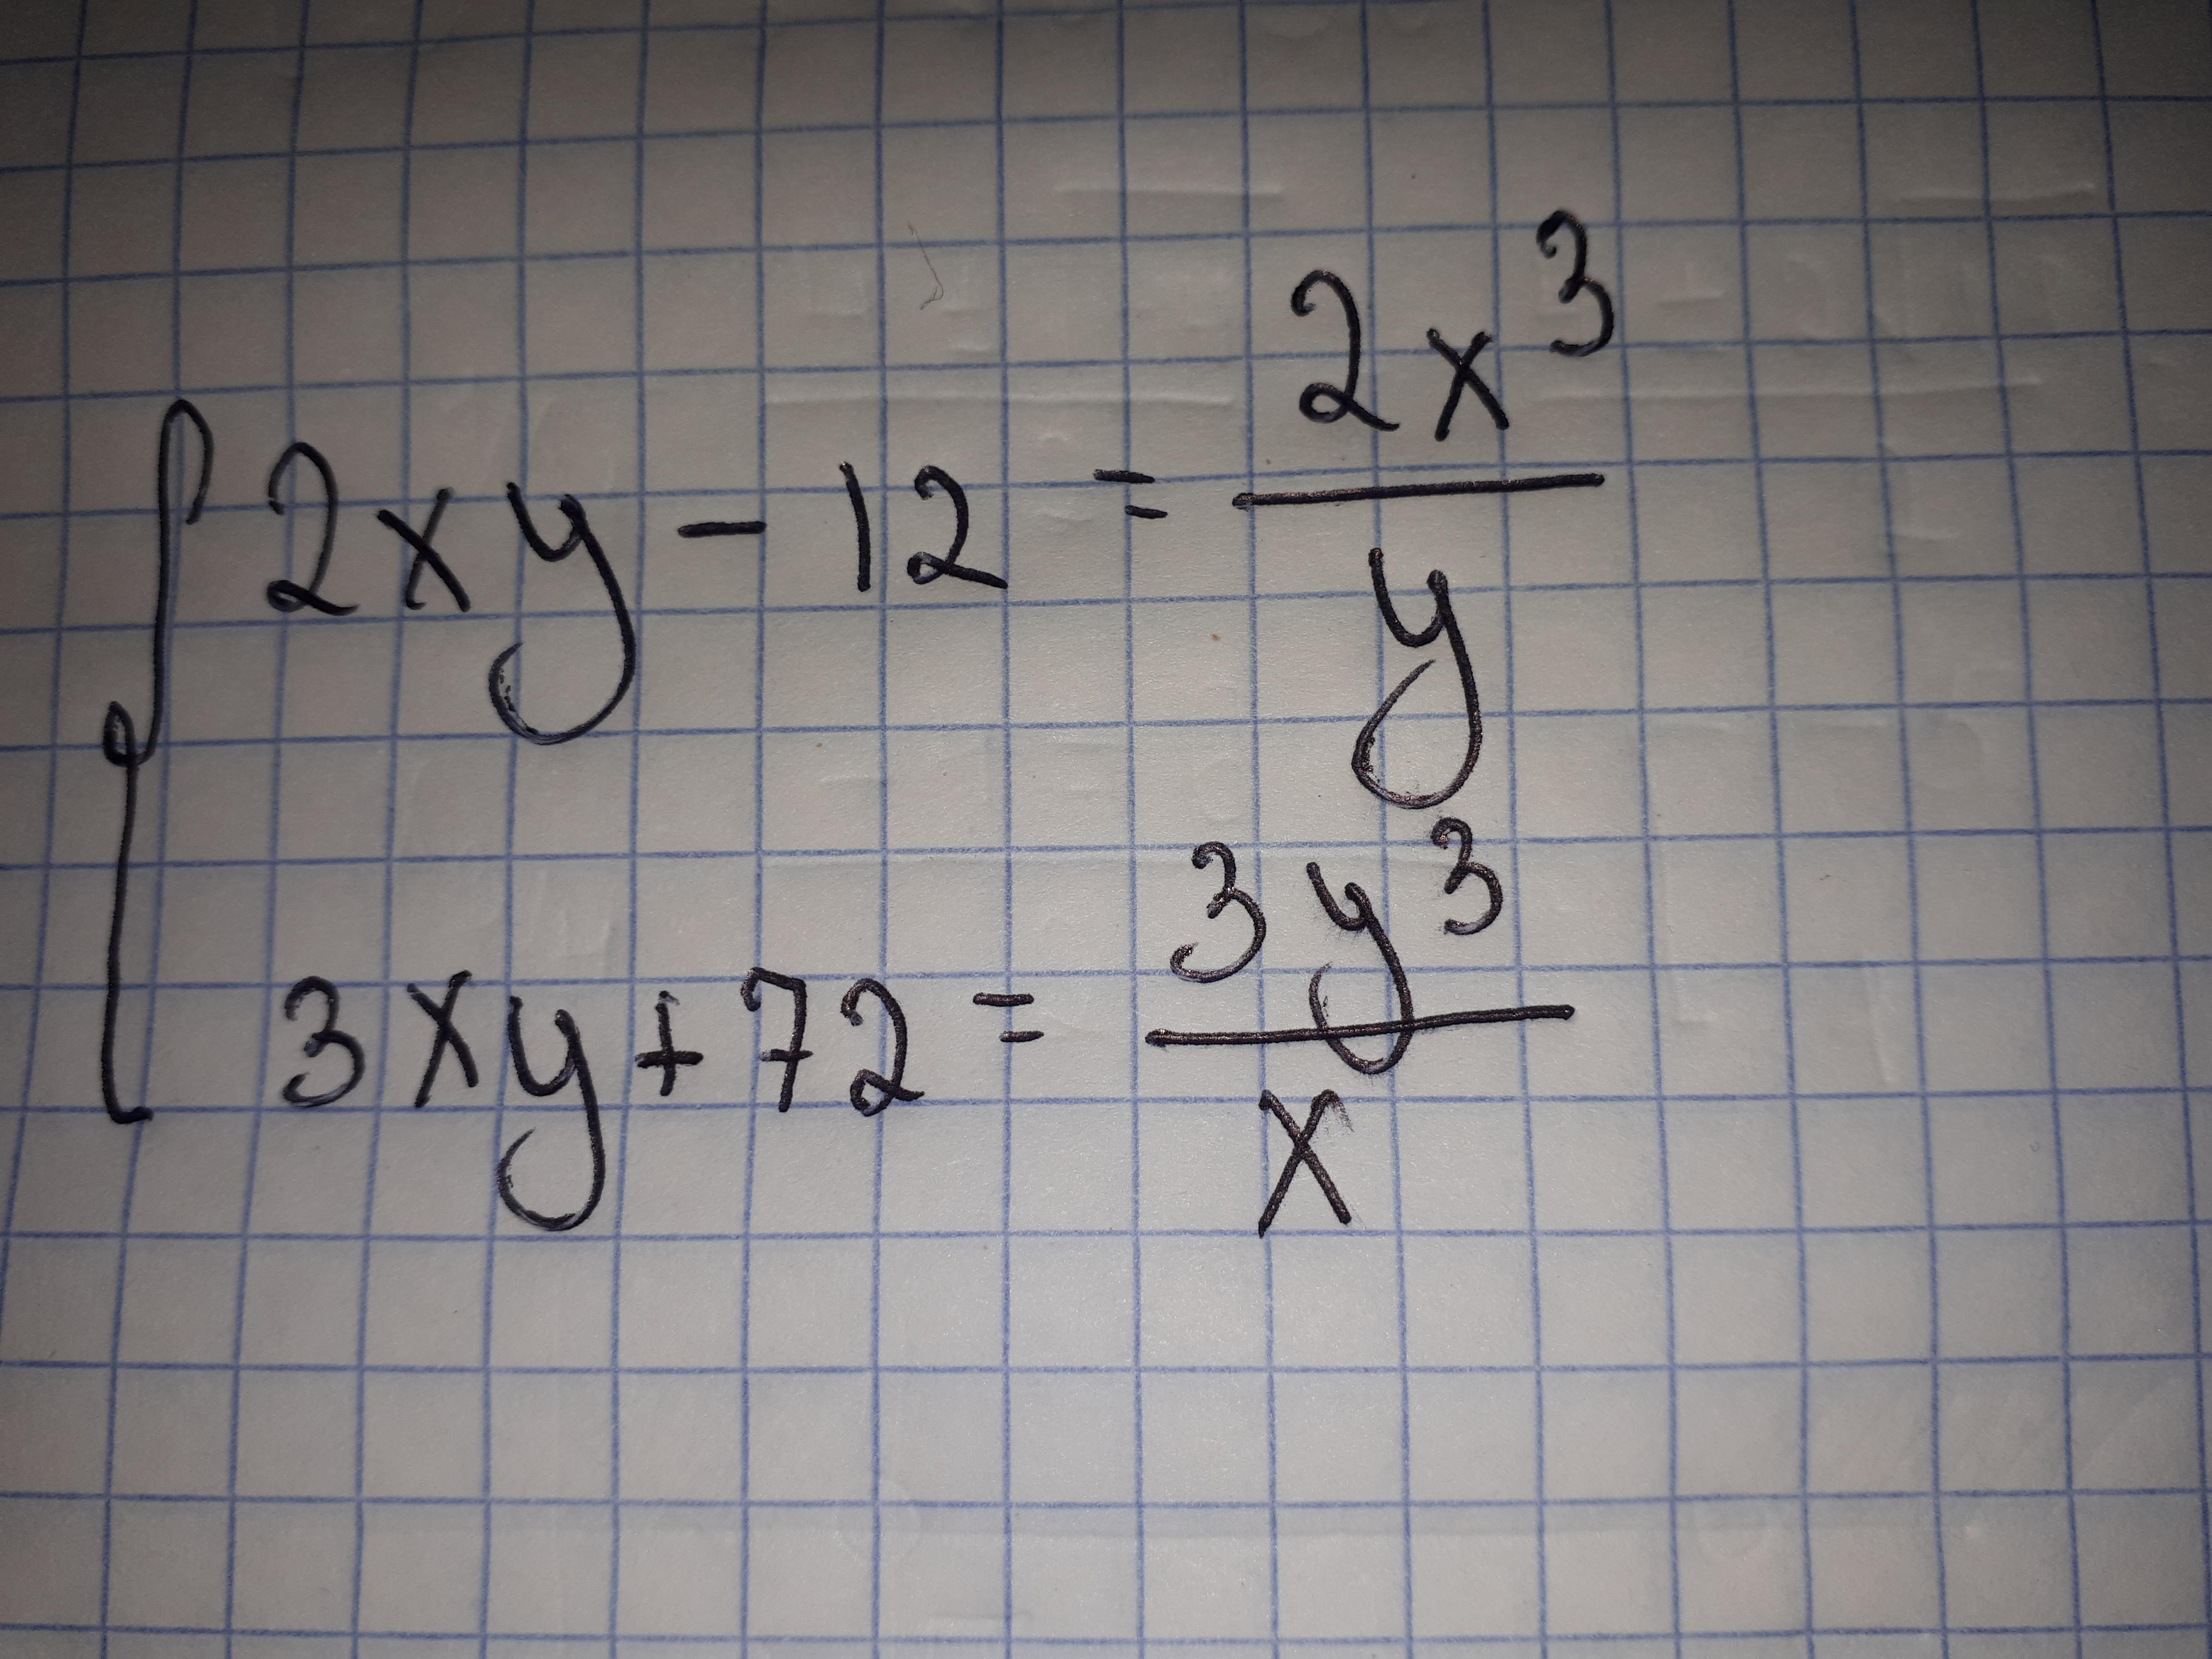 2xy - 12 = 2x³/y
3xy + 72 = 3y³/x